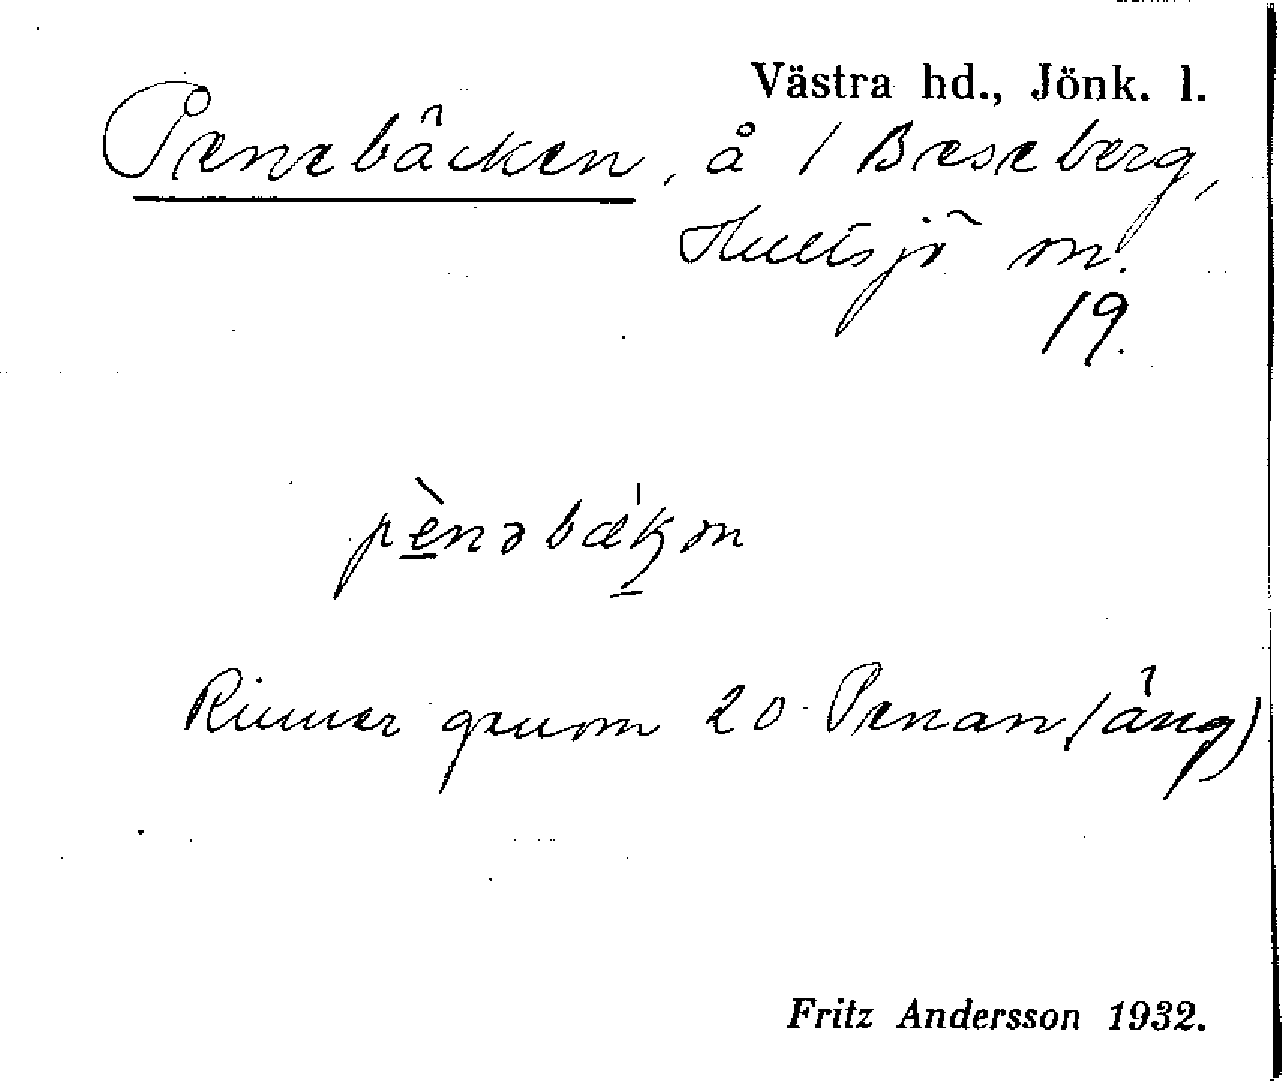 Västra hd., Jönk. l.
Penebäcken, å / Beseberg,
Hultsjö sn.
19.
pènəbækən
Rinner genom 20 Penan (äng)
Fritz Andersson 1932.